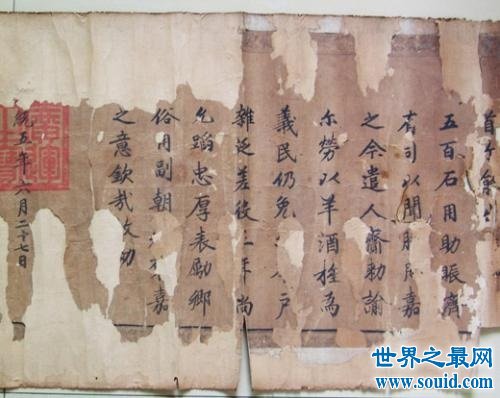 五百石用助賑濟
有司以聞朕嘉
之今遣人齎勅諭
尔勞以羊酒旌為
義民仍免户
雜泛差役年尚
允蹈忠厚表勵鄉
俗用副朝嘉
之意欽哉故勅
統五年六月二十七日
廣運之寶
世界之最网
www.souid.com